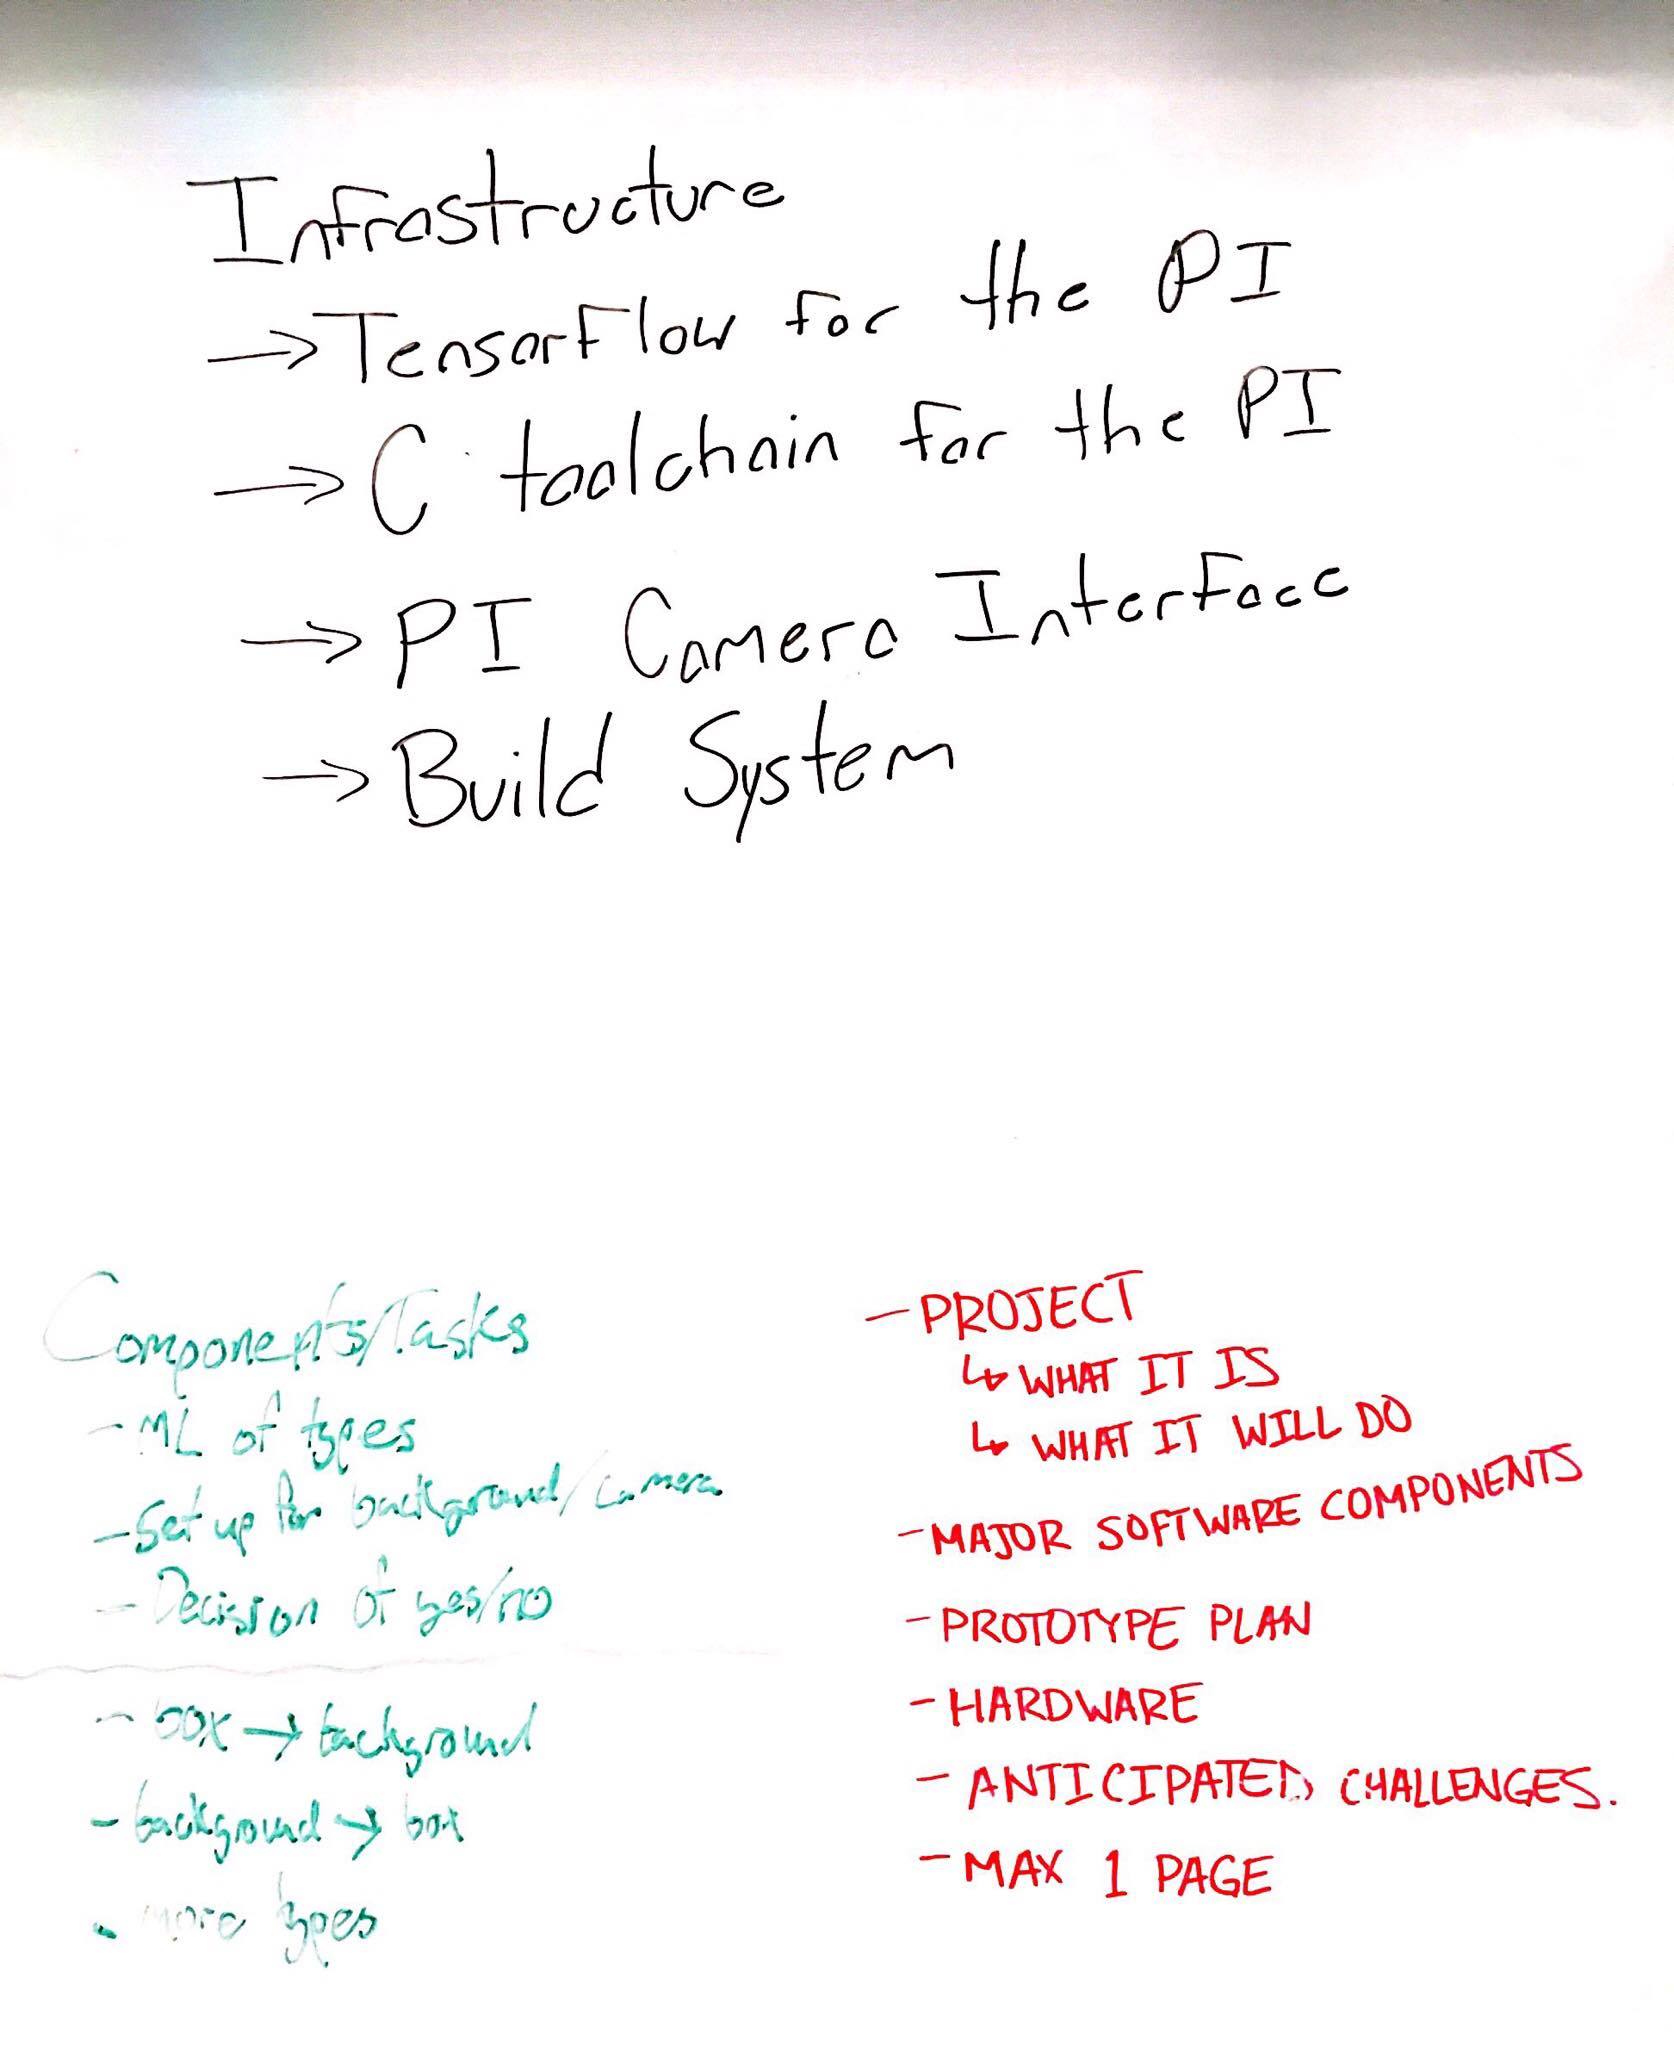 Infrastructure
→ Tensorflow for the PI
→ C toolchain for the PI
→ PI Camera Interface
→ Build System
Components/Tasks
- ML of types
- Set up for background/camera
- Decision of yes/no
- box → background
- background → box
- more types
- PROJECT
↳ WHAT IT IS
↳ WHAT IT WILL DO
- MAJOR SOFTWARE COMPONENTS
- PROTOTYPE PLAN
- HARDWARE
- ANTICIPATED CHALLENGES.
- MAX 1 PAGE